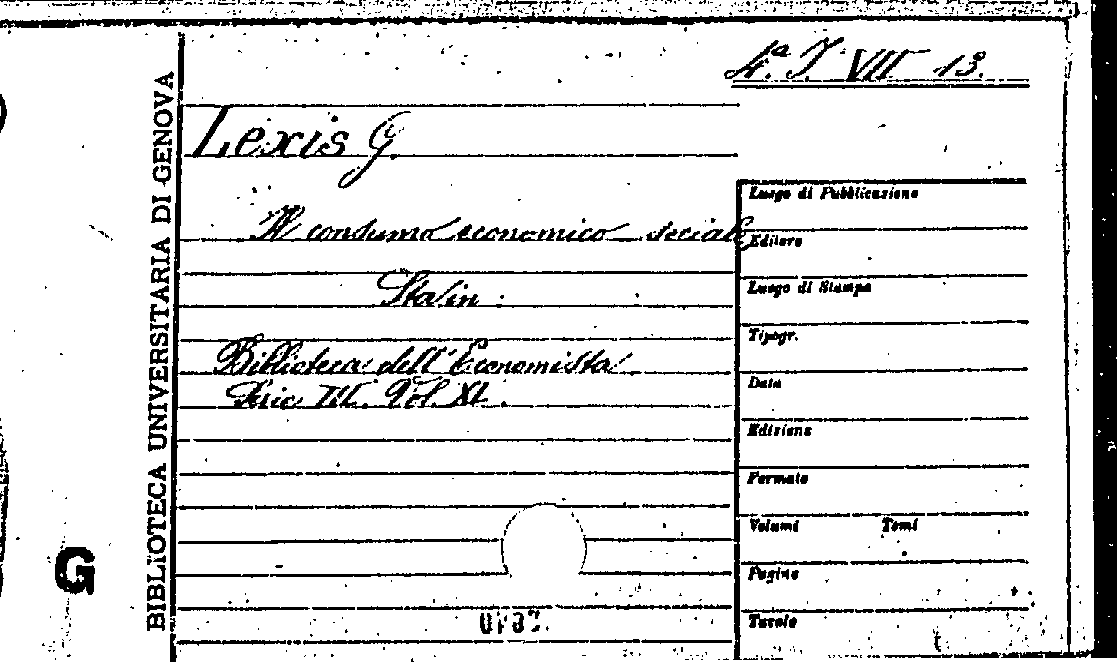 4ª. I. VII 13.
BIBLIOTECA UNIVERSITARIA DI GENOVA
Lexis G
Il consumo economico sociale
Biblioteca dell'Economista
Serie III. Vol. XI.
Luogo di Pubblicazione
Editore
Luogo di Stampa
Tipogr.
Data
Edizione
Formato
Volumi Tomi
Pagine
Tavole
G